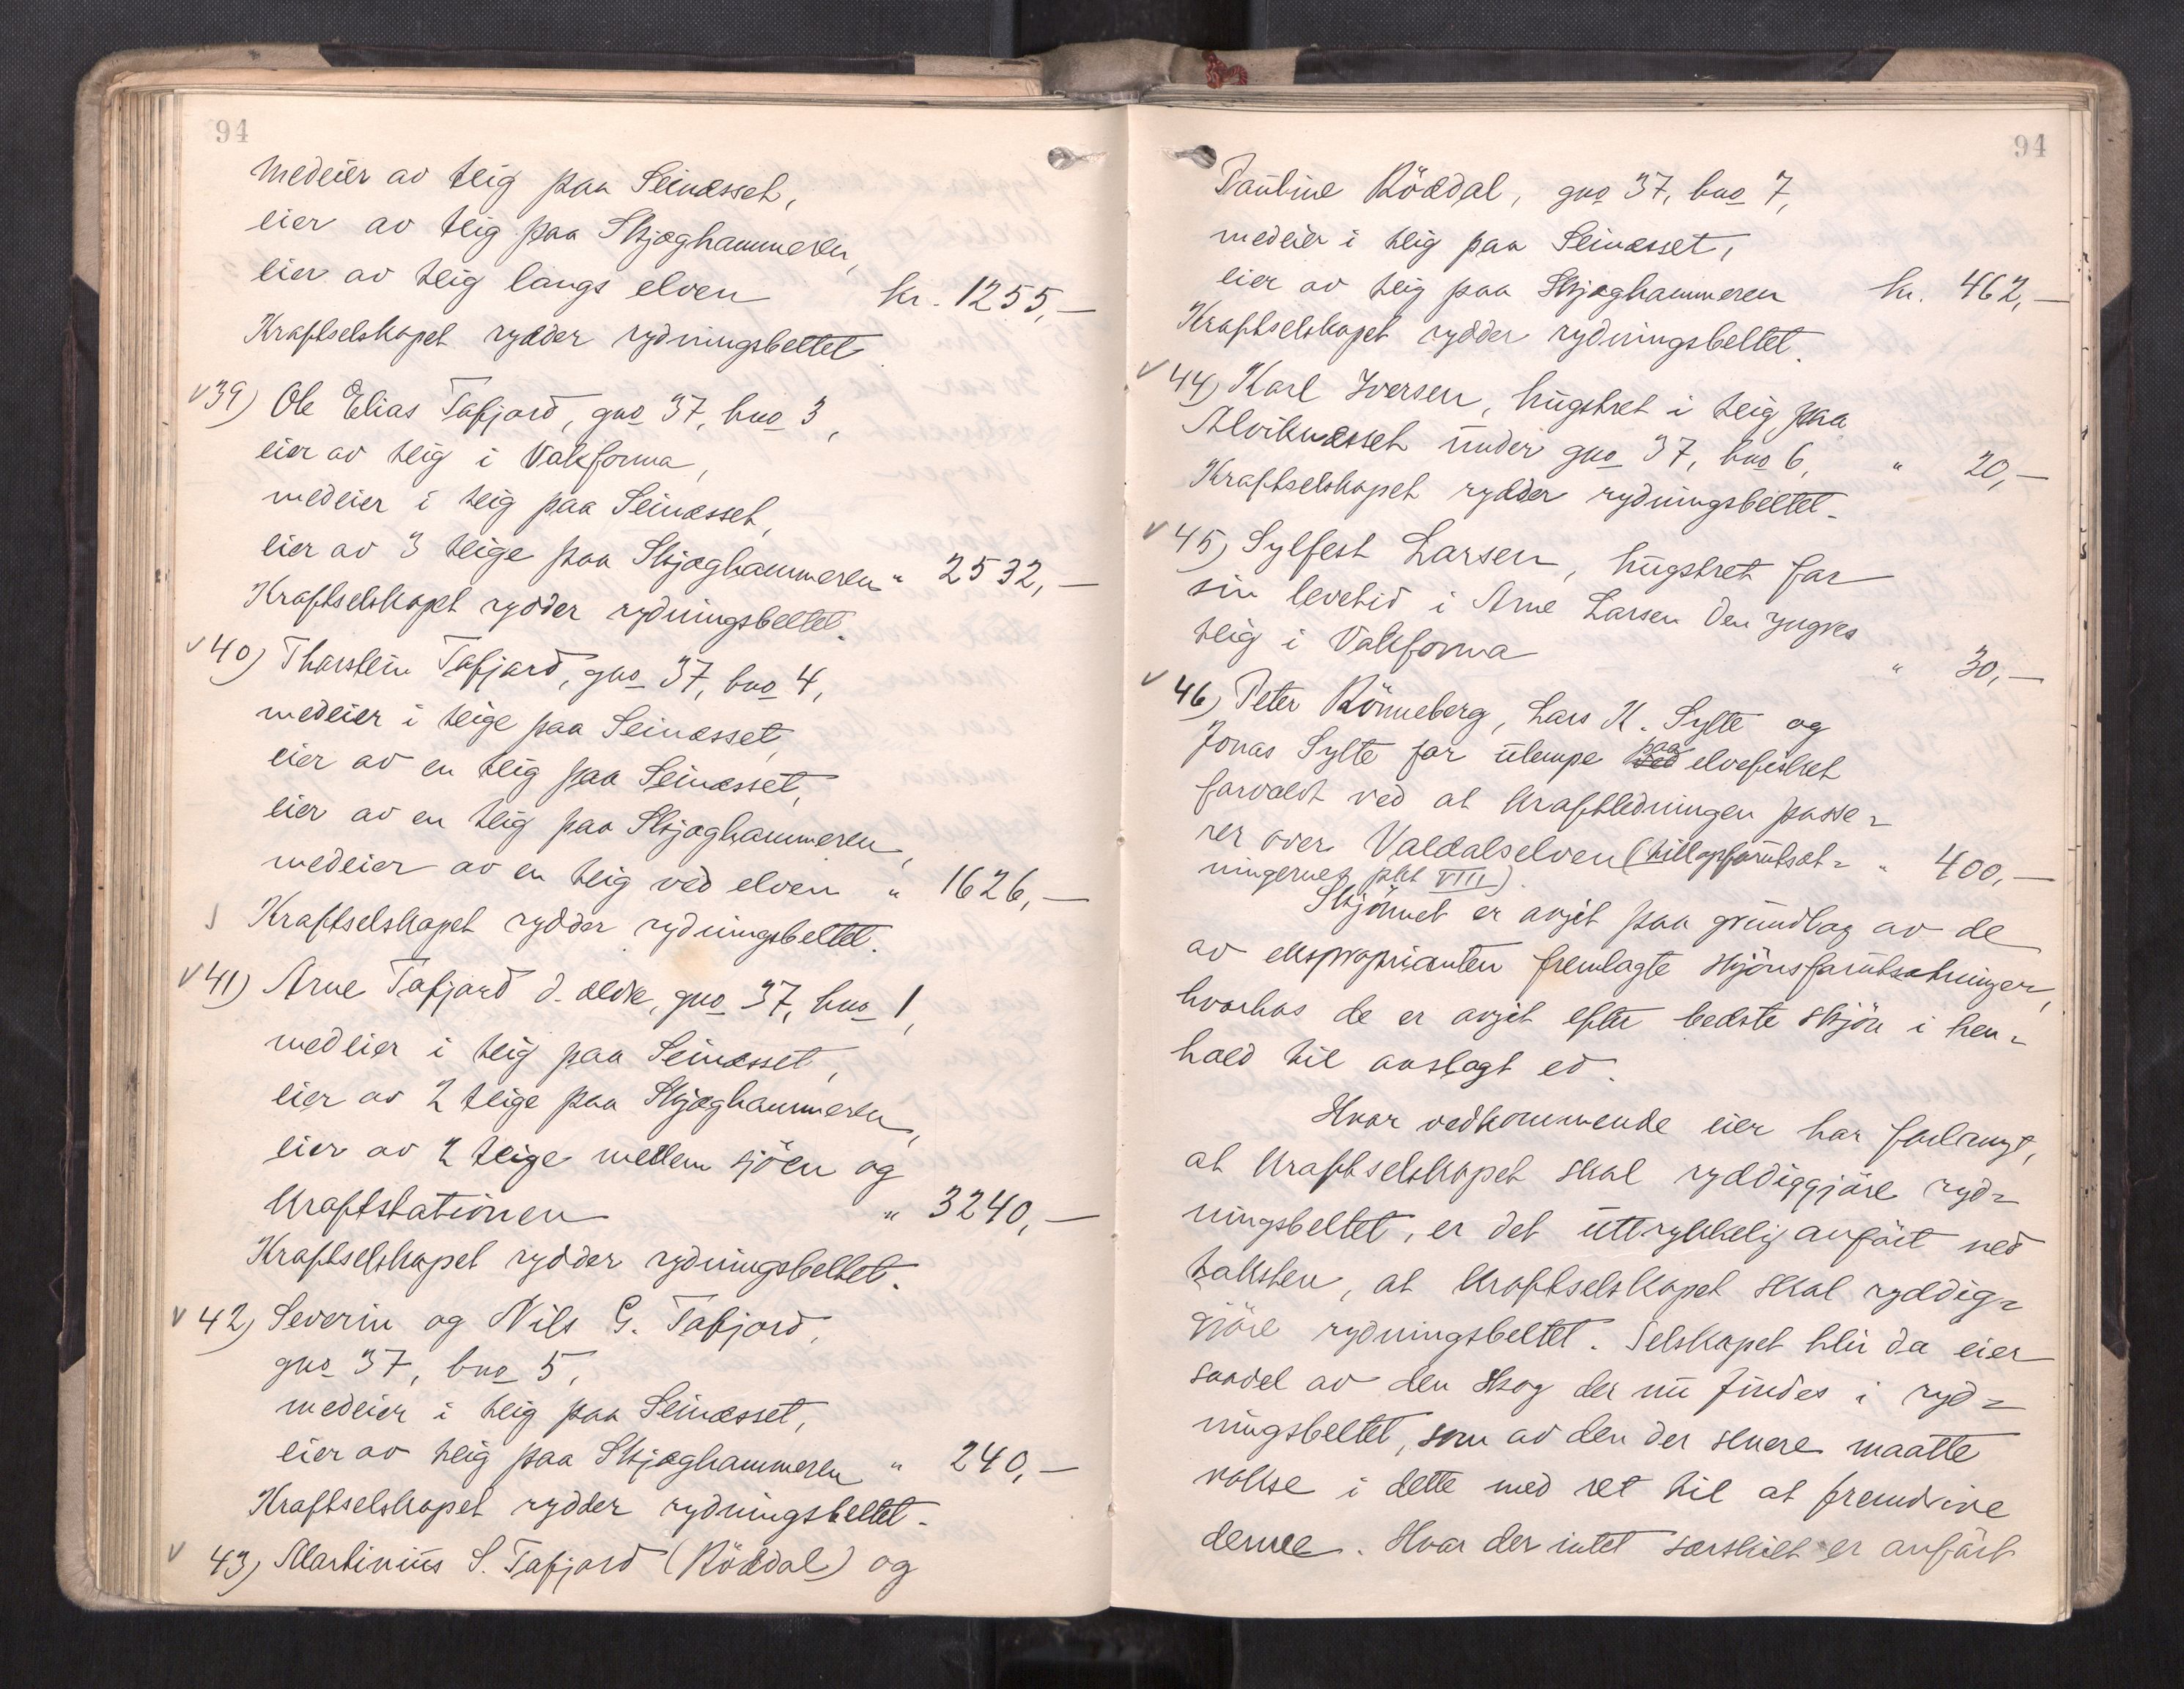 94
medeier av teig paa Seinæsset,
eier av teig paa Skjæghammeren,
eier av teig langs elven kr. 1255,—
Kraftselskapet rydder rydningsbeltet.
39) Ole Elias Tafjord, gno 37, bno 3,
eier av teig i Vakforma,
medeier i teig paa Seinæsset,
eier av 3 teige paa Skjæghammeren " 2532,—
Kraftselskapet rydder rydningsbeltet.
40) Thorstein Tafjord, gno 37, bno 4,
medeier i teige paa Seinæsset,
eier av en teig paa Seinæsset,
eier av en teig paa Skjæghammeren,
medeier av en teig ved elven " 1626,—
Kraftselskapet rydder rydningsbeltet.
41) Arne Tafjord d. ældre, gno 37, bno 1,
medeier i teig paa Seinæsset,
eier av 2 teige paa Skjæghammeren,
eier av 2 teige mellem sjöen og
kraftstationen " 3240,—
Kraftselskapet rydder rydningsbeltet.
42) Severin og Nils G. Tafjord,
gno 37, bno 5,
medeier i teig paa Seinæsset,
eier av teig paa Skjæghammeren " 240,—
Kraftselskapet rydder rydningsbeltet.
43) Martinius S. Tafjord (Röddal) og
94
Pauline Röddal, gno 37, bno 7,
medeier i teig paa Seinæsset,
eier av teig paa Skjæghammeren kr. 462,—
Kraftselskapet rydder rydningsbeltet.
44) Karl Iversen, hugstret i teig paa
Alviknæsset under gno 37, bno 6, " 20,—
Kraftselskapet rydder rydningsbeltet.
45) Sylfest Larsen, hugstret for
sin levetid i Arne Larsen den yngres
teig i Vakforma " 30,—
46) Peter Rönneberg, Lars K. Sylte og
Jonas Sylte for ulempe ved paa elvefisket
forvoldt ved at kraftledningen passe-
rer over Valdalselven (tillægsforutsæt- " 400,—
ningernes pkt VIII).
Skjönnet er avgit paa grundlag av de
av eksproprianten fremlagte skjönsforutsætninger,
hvorhos de er avgit efter bedste skjön i hen-
hold til avlagt ed.
Hvor vedkommende eier har forlangt,
at kraftselskapet skal ryddiggjöre ryd-
ningsbeltet, er det uttrykkelig anfört ved
taksten, at kraftselskapet skal ryddig-
gjöre rydningsbeltet. Selskapet blir da eier
saavel av den skog der nu findes i ryd-
ningsbeltet, som av den der senere maatte
vokse i dette med ret til at fremdrive
denne. Hvor der intet særskilt er anfört